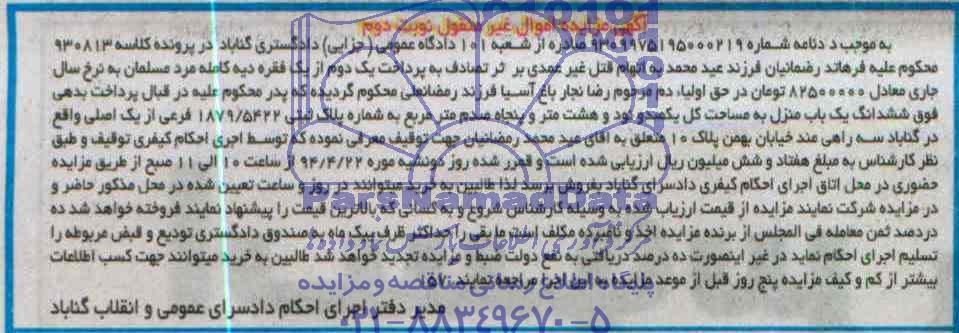 آگهی مزایده اموال غیر منقول نوبت دوم
به موجب د دنامه شماره ۹۳۰۹۹۷۵۱۹۵۰۰۰۲۱۹ صادره از شعبه ۱۰۱ دادگاه عمومی (جزایی) دادگستری گناباد در پرونده کلاسه ۹۳۰۸۱۳
محکوم علیه فرهاند رضمانیان فرزند عید محمد به اتهام قتل غیر عمدی بر اثر تصادف به پرداخت یک دوم از یک فقره دیه کامله مرد مسلمان به نرخ سال
جاری معادل ۸۲۵۰۰۰۰۰ تومان در حق اولیاء دم مرحوم رضا نجار باغ آسیا فرزند رمضانعلی محکوم گردیده که پدر محکوم علیه در قبال پرداخت بدهی
فوق ششدانگ یک باب منزل به مساحت کل یکصدو نود و هشت متر و پنجاه صدم متر مربع به شماره پلاک ثبتی ۱۸۷۹/۵۴۲۲ فرعی از یک اصلی واقع
در گناباد سه راهی مند خیابان بهمن پلاک ۱۰ متعلق به آقای عید محمد رمضانیان جهت توقیف معرفی نموده که توسط اجری احکام کیفری توقیف و طبق
نظر کارشناس به مبلغ هفتاد و شش میلیون ریال ارزیابی شده است و قمرر شده روز دوشنبه موره ۹۴/۴/۲۲ از ساعت ۱۰ الی ۱۱ صبح از طریق مزایده
حضوری در محل اتاق اجرای احکام کیفری دادسرای گناباد بفروش برسد لذا طالبین به خرید میتوانند در روز و ساعت تعیین شده در محل مذکور حاضر و
در مزایده شرکت نمایند مزایده از قیمت ارزیاب شده به وسیله کارشناس شروع و به کسانی که بالاترین قیمت را پیشنهاد نمایند فروخته خواهد شد ده
درصد ثمن معامله فی المجلس از برنده مزایده اخذ و نامبرده مکلف است ما بقی را حداکثر ظرف یک ماه به صندوق دادگستری تودیع و قبض مربوطه را
تسلیم اجرای احکام نماید در غیر اینصورت ده درصد دریافتی به نفع دولت ضبط و مزایده تجدید خواهد شد طالبین به خرید میتوانند جهت کسب اطلاعات
بیشتر از کم و کیف مزایده پنج روز قبل از موعد مزایده به این اجرا مراجعه نمایند.
مدیر دفتر اجرای احکام دادسرای عمومی و انقلاب گناباد
ParsNamadData
مرکز فرآوری اطلاعات پارس نماد داده
پایگاه اطلاع رسانی مناقصه و مزایده
۰۲۱-۸۸۳۴۹۶۷۰-۵